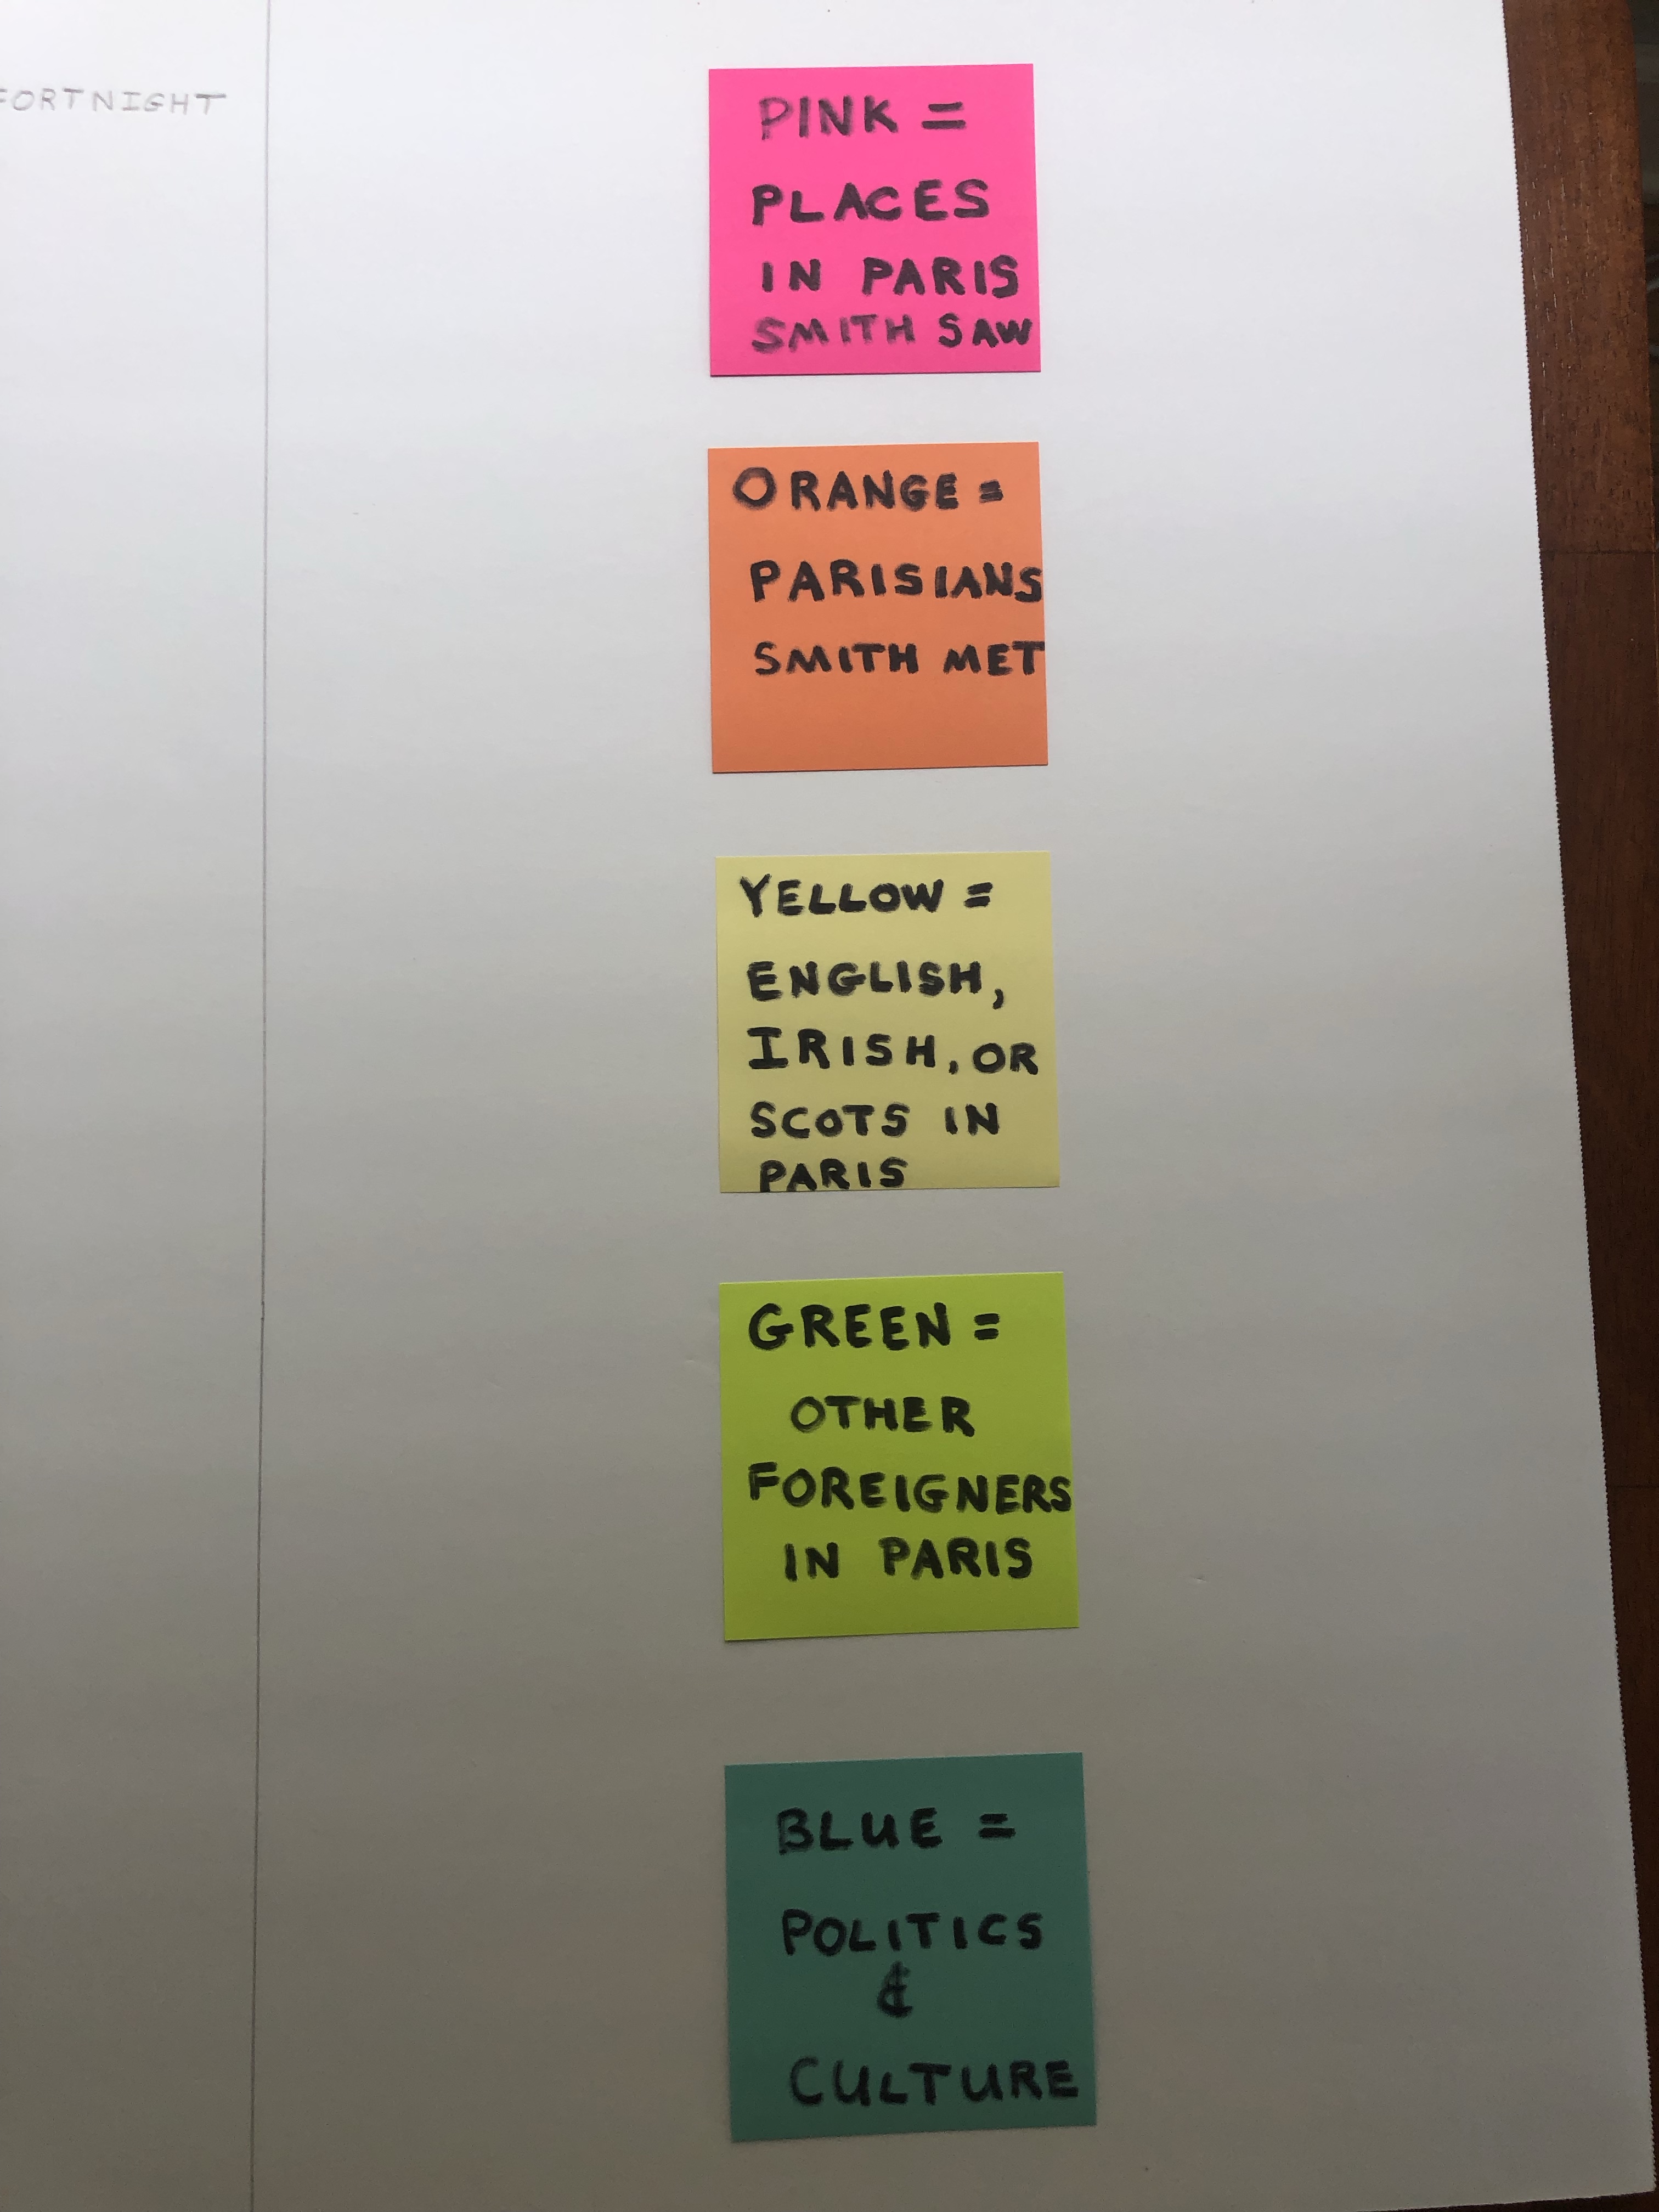 FORTNIGHT
PINK =
PLACES
IN PARIS
SMITH SAW
ORANGE =
PARISIANS
SMITH MET
YELLOW =
ENGLISH,
IRISH, OR
SCOTS IN
PARIS
GREEN =
OTHER
FOREIGNERS
IN PARIS
BLUE =
POLITICS
&
CULTURE